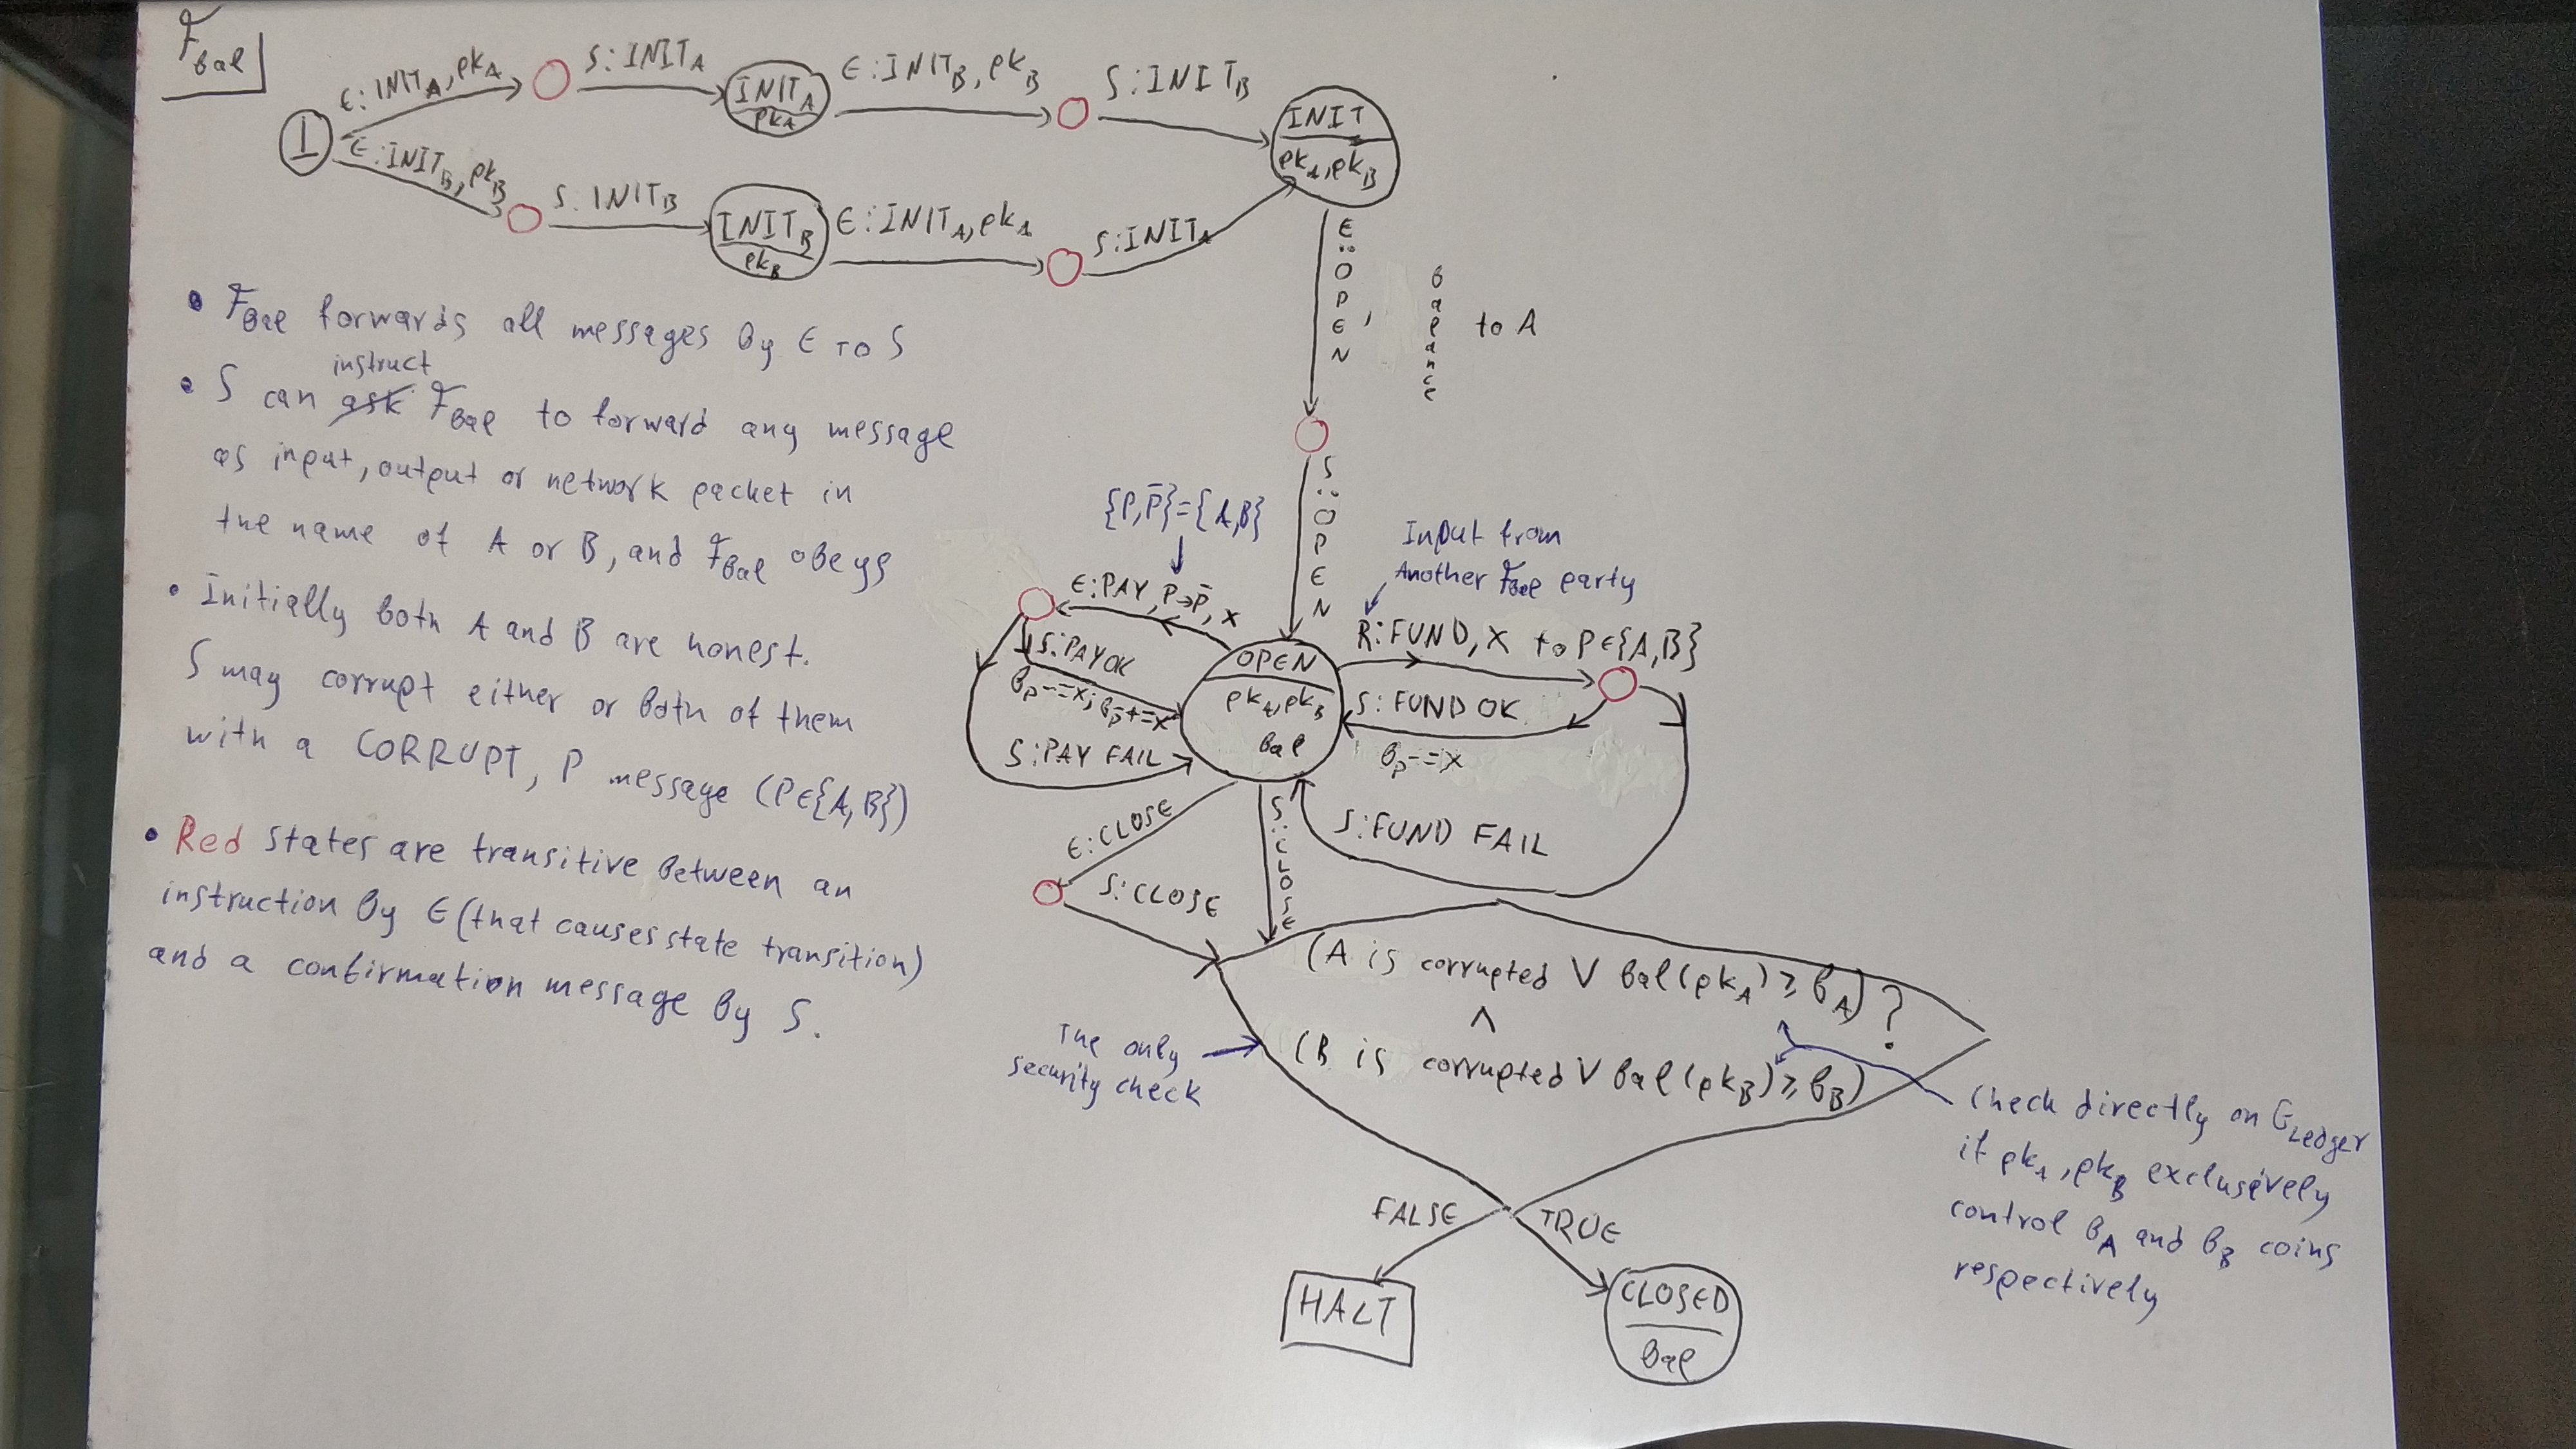 F_Bal
Ɛ: INIT_A, pk_A
S: INIT_A
INIT_A
pk_A
Ɛ: INIT_B, pk_B
S: INIT_B
INIT
pk_A, pk_B
⊥
Ɛ: INIT_B, pk_B
S: INIT_B
INIT_B
pk_B
Ɛ: INIT_A, pk_A
S: INIT_A
Ɛ: OPEN, balance to A
S: OPEN
• F_Bal forwards all messages by Ɛ to S
instruct
• S can ask F_Bal to forward any message
as input, output or network packet in
the name of A or B, and F_Bal obeys
• Initially both A and B are honest.
S may corrupt either or both of them
with a CORRUPT, P message (P∈{A,B})
• Red states are transitive between an
instruction by Ɛ (that causes state transition)
and a confirmation message by S.
{P, P̄} = {A,B}
Ɛ: PAY, P→P̄, x
S: PAY OK
b_P -= x; b_P̄ += x
S: PAY FAIL
Input from
Another F_Bal party
R: FUND, x to P∈{A,B}
OPEN
pk_A, pk_B
bal
S: FUND OK
b_P -= x
S: FUND FAIL
Ɛ: CLOSE
S: CLOSE
S: CLOSE
(A is corrupted ∨ bal(pk_A) ≥ b_A)
∧
?
(B is corrupted ∨ bal(pk_B) ≥ b_B)
The only
security check
Check directly on G_Ledger
if pk_A, pk_B exclusively
control b_A and b_B coins
respectively
FALSE
TRUE
HALT
CLOSED
bal